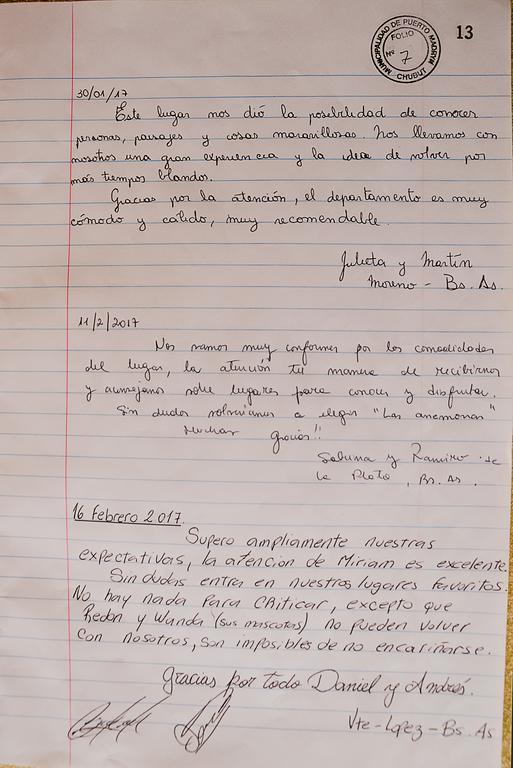 13
MUNICIPALIDAD DE PUERTO MADRYN
FOLIO
Nº 7
CHUBUT
30/01/17
Este lugar nos dió la posibilidad de conocer
personas, paisajes y cosas maravillosas. Nos llevamos con
nosotros una gran experiencia y la idea de volver por
más tiempos blandos.
Gracias por la atención, el departamento es muy
cómodo y cálido, muy recomendable.
Julieta y Martín
Moreno - Bs. As.
11/2/2017
Nos vamos muy conformes por las comodidades
del lugar, la atención tu manera de recibirnos
y aconsejarnos sobre lugares para conocer y disfrutar.
Sin dudas volveríamos a elegir "Las anemonas"
Muchas gracias!!
y Ramiro de
La Plata, Bs. As.
16 Febrero 2017.
Supero ampliamente nuestras
expectativas, la atencion de Miriam es excelente.
Sin dudas entra en nuestros lugares favoritos.
No hay nada para criticar, excepto que
y Wanda (sus mascotas) no pueden volver
con nosotros, son imposibles de no encariñarse.
Gracias por todo Daniel y Andrés.
Vte-Lopez-Bs. As